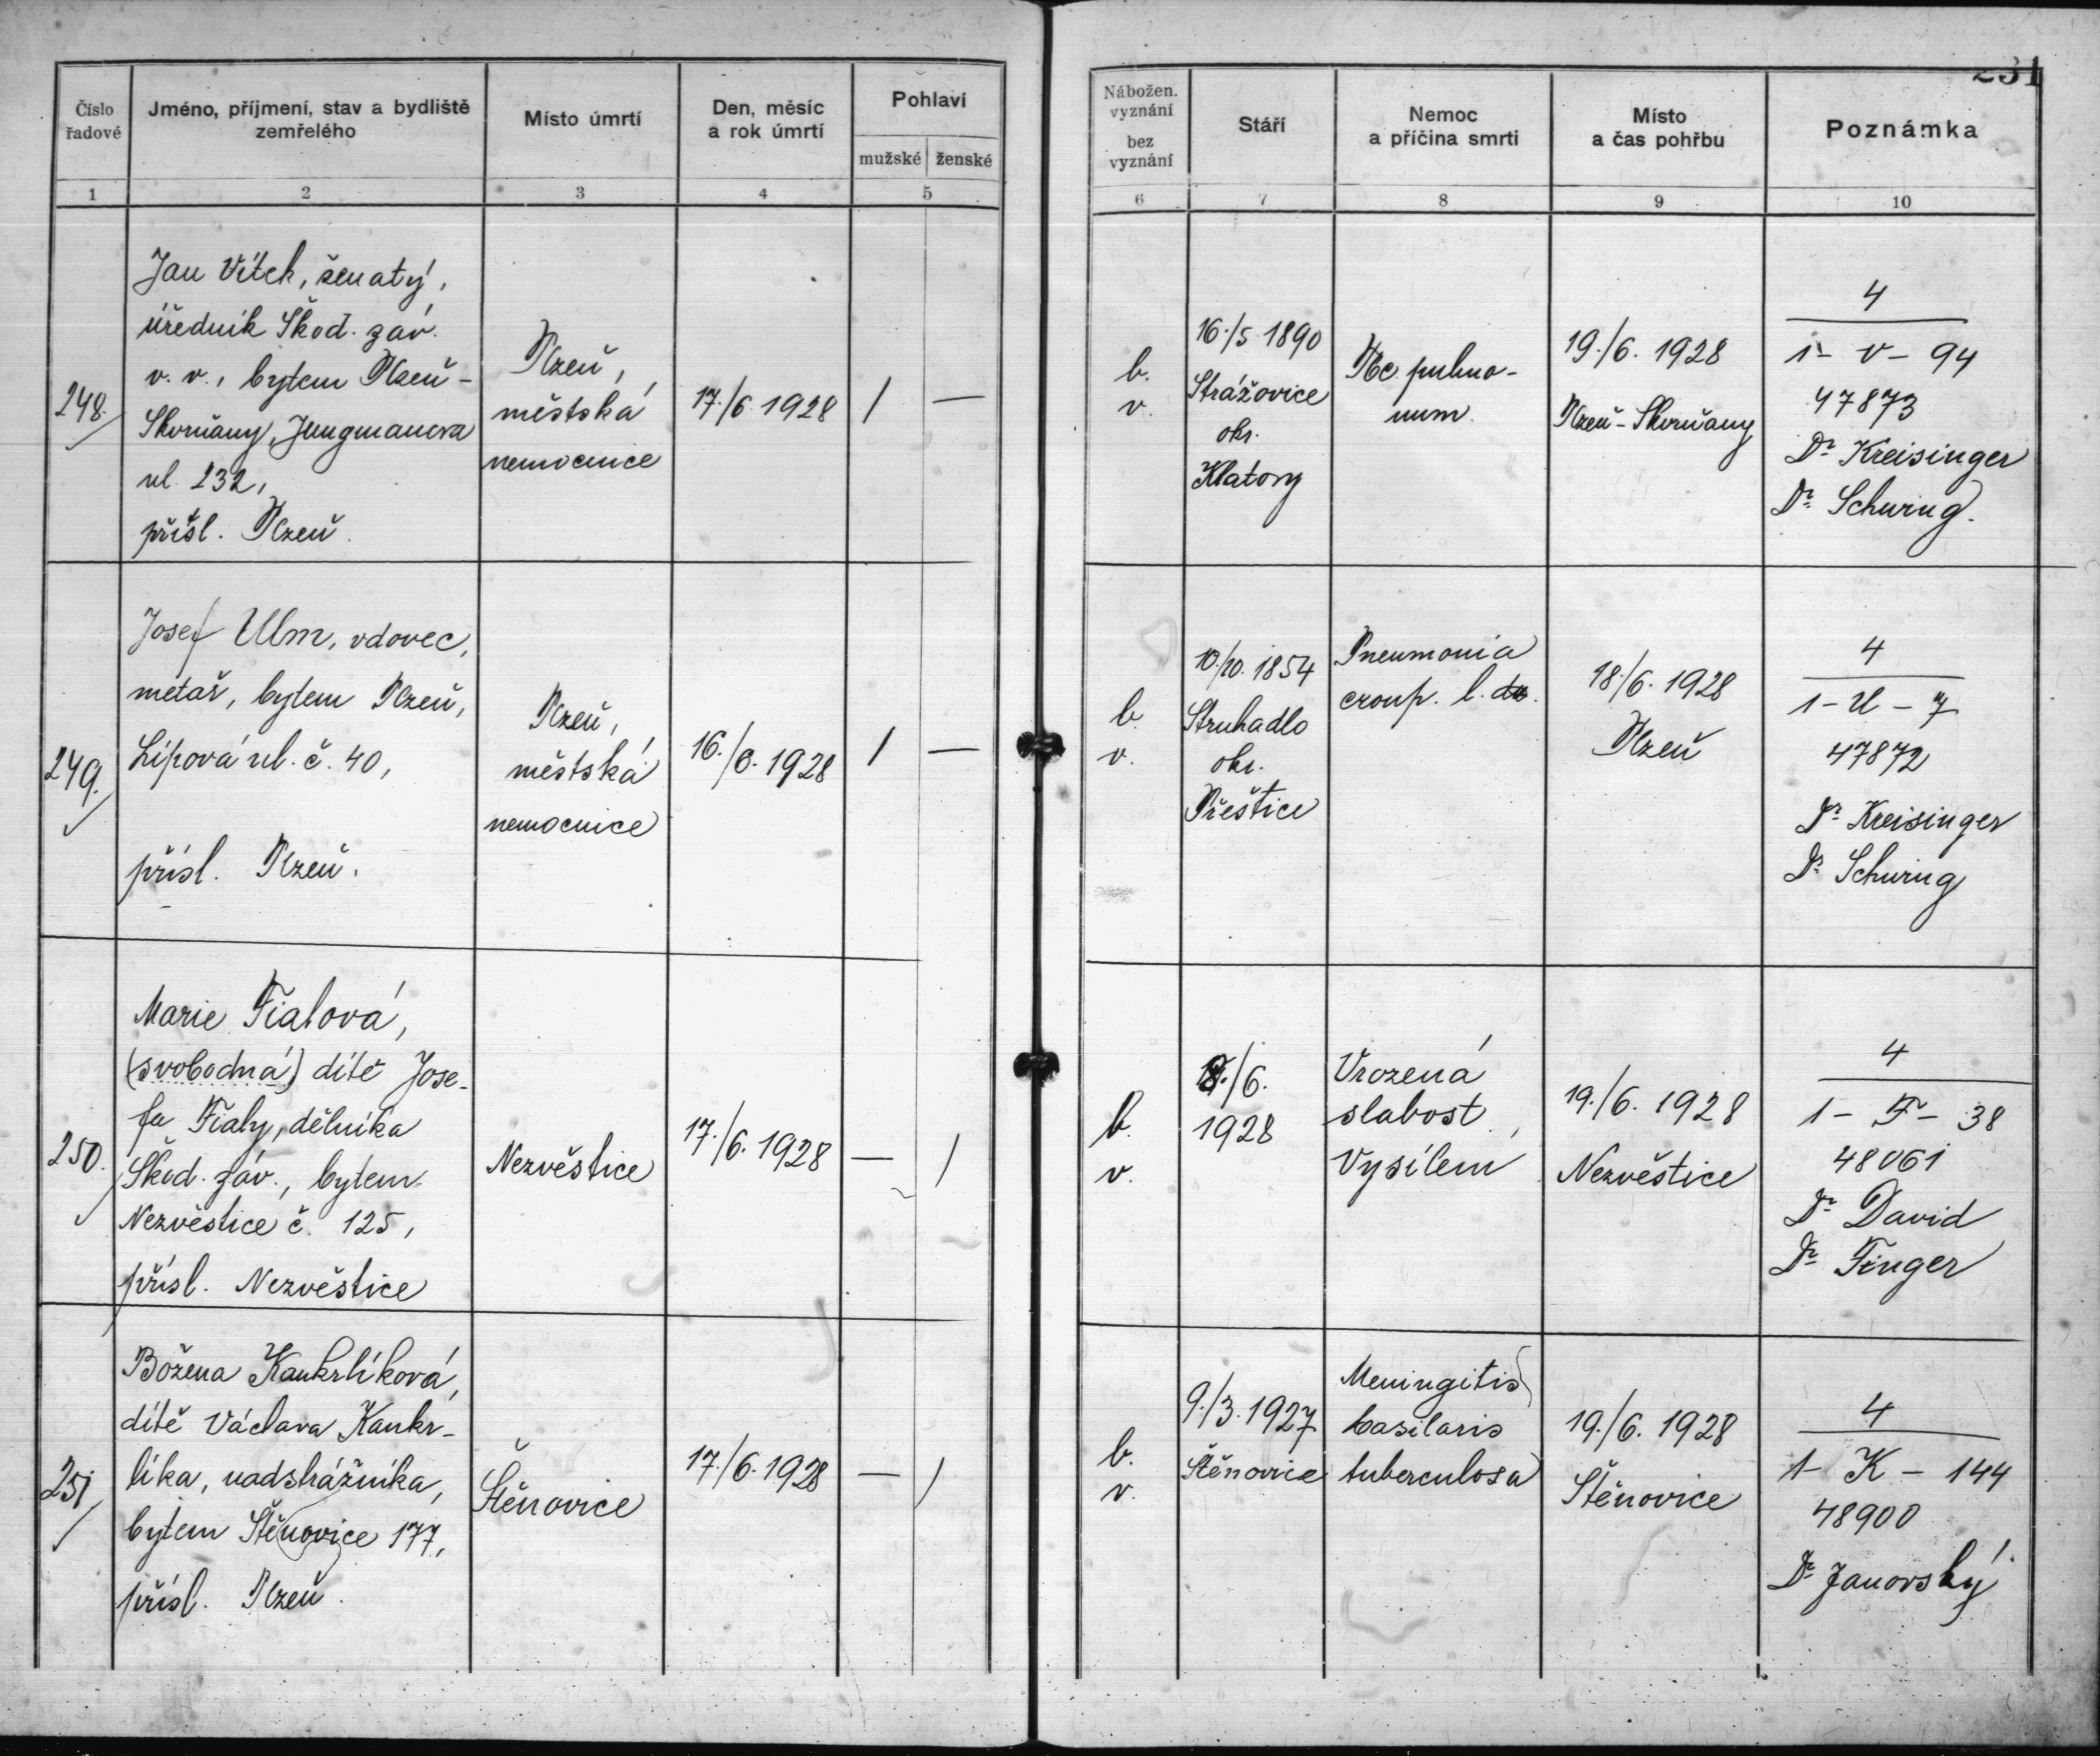 231
Číslo řadové
Jméno, příjmení, stav a bydliště zemřelého
Místo úmrtí
Den, měsíc a rok úmrtí
Pohlaví
mužské
ženské
Nábožen. vyznání
bez vyznání
Stáří
Nemoc a příčina smrti
Místo a čas pohřbu
Poznámka
1
2
3
4
5
6
7
8
9
10
248.
Jan Vítek, ženatý,
úředník Škod. záv.
v. v., bytem Plzeň-
Skvrňany, Jungmanova
ul. 232,
přísl. Plzeň.
Plzeň,
městská
nemocnice
17./6. 1928
/
—
b.
v.
16./5. 1890
Strážovice
okr.
Klatovy
Tbc. pulmo-
num.
19./6. 1928
Plzeň-Skvrňany
4
1 - V - 94
47873
Dr. Kreisinger
Dr. Schwing.
249.
Josef Ulm, vdovec,
metař, bytem Plzeň,
Lípová ul. č. 40,
přísl. Plzeň.
Plzeň,
městská
nemocnice
16./6. 1928
/
—
b.
v.
10./10. 1854
Struhadlo
okr.
Přeštice
Pneumonia
croup. l.
18./6. 1928
Plzeň
4
1 - U - 7
47872
Dr. Kreisinger
Dr. Schwing
250.
Marie Fialová,
(svobodná) dítě Jose-
fa Fialy, dělníka
Škod. záv., bytem
Nezvěstice č. 125,
přísl. Nezvěstice
Nezvěstice
17./6. 1928
—
/
b.
v.
/6.
1928
Vrozená
slabost.
Vysílení
19./6. 1928
Nezvěstice
4
1 - F - 38
48061
Dr. David
Dr. Finger
251
Božena Kankrlíková,
dítě Václava Kankr-
líka, nadstrážníka,
bytem Štěnovice 177,
přísl. Plzeň.
Štěnovice
17./6. 1928
—
/
b.
v.
9./3. 1927
Štěnovice
Meningitis
basilaris
tuberculosa
19./6. 1928
Štěnovice
4
1 - K - 144
48900
Dr. Janovský